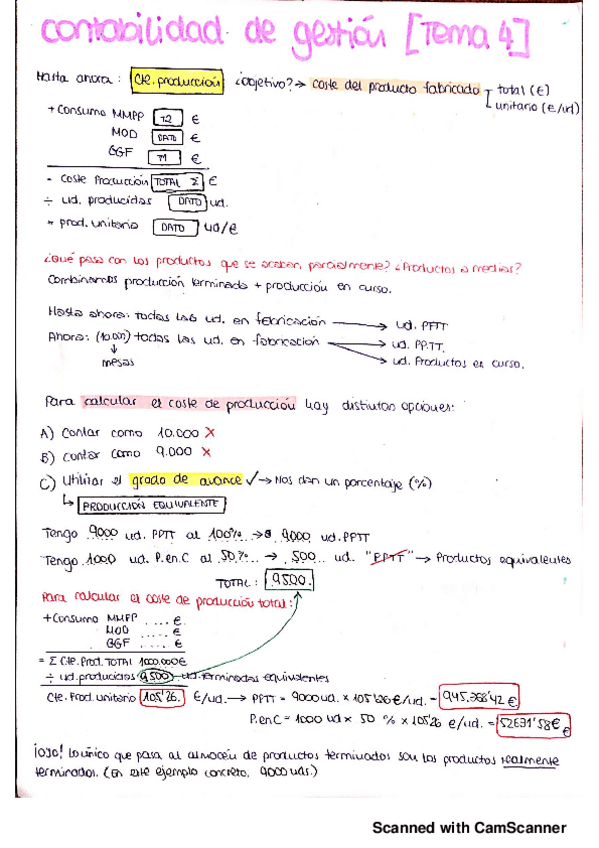 contabilidad de gestión [Tema 4]
Hasta ahora: Cte. producción ¿objetivo? → coste del producto fabricado
total (€)
unitario (€/ud)
+ Consumo MMPP T2 €
MOD DATO €
GGF T1 €
- Coste Producción TOTAL Σ €
÷ ud. producidas DATO ud.
= prod. unitario DATO ud/€
¿Qué pasa con los productos que se acaban, parcialmente? ¿Productos a medias?
Combinamos producción terminada + producción en curso.
Hasta ahora: Todas las ud. en fabricación → ud. PPTT
Ahora: (10.000) todas las ud. en fabricación → ud. PP.TT.
→ ud. Productos en curso.
↓
mesas
Para calcular el coste de producción hay distintas opciones:
A) Contar como 10.000 X
B) contar como 9.000 X
C) Utilizar el grado de avance ✓→ Nos dan un porcentaje (%)
↳ PRODUCCIÓN EQUIVALENTE
Tengo 9000 ud. PPTT al 100% → 9000 ud. PPTT
Tengo 1000 ud. P.en.C al 50% → 500 ud. "PPTT" → Productos equivalentes
TOTAL: 9500.
Para calcular el coste de producción total:
+ Consumo MMPP ..... €
MOD ..... €
GGF ..... €
= Σ Cte. Prod. TOTAL 1000.000€
÷ ud. producidas 9.500 ud. terminadas equivalentes
Cte. Prod. unitario 105'26. €/ud. → PPTT = 9000ud. x 105'626€/ud. = 945.368'42 €
P.en C = 1000 ud x 50 % x 105'26 €/ud. = 52631'58€ €
¡OJO! Lo único que pasa al almacén de productos terminados son los productos realmente
terminados. (En este ejemplo concreto, 9000 uds.)
Scanned with CamScanner